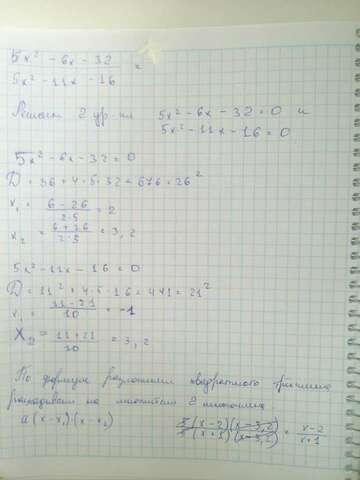 5x² - 6x - 32
5x² - 11x - 16
=
Решаем 2 ур-ия 5x² - 6x - 32 = 0 и
5x² - 11x - 16 = 0
5x² - 6x - 32 = 0
D = 36 + 4·5·32 = 676 = 26²
x₁ = (6 - 26)/(2·5) = 2
x₂ = (6 + 26)/(2·5) = 3,2
5x² - 11x - 16 = 0
D = 11² + 4·5·16 = 441 = 21²
x₁ = (11 - 21)/10 = -1
x₂ = (11 + 21)/10 = 3,2
По формуле разложения квадратного трехчлена
раскладываем на множители 2 многочлена
a(x - x₁)·(x - x₂)
5(x - 2)(x - 3,2)
5(x + 1)(x - 3,2)
= (x - 2)/(x + 1)